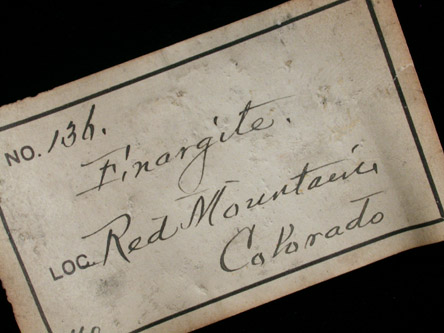 NO. 13h.
Enargite.
LOC. Red Mountain,
Colorado